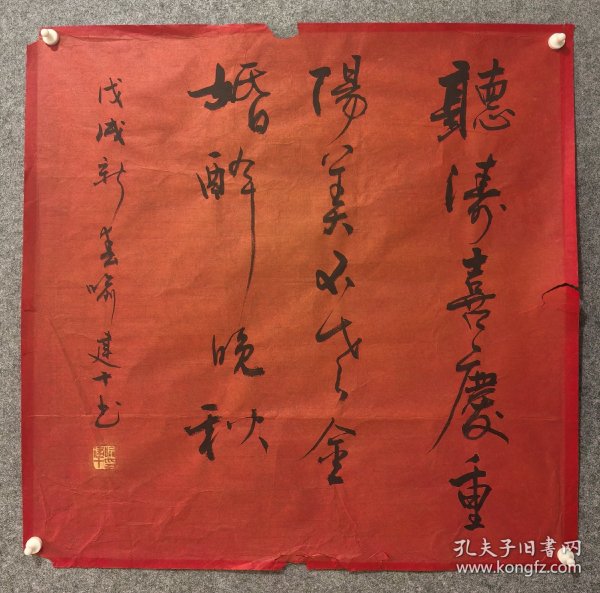 聽濤喜慶重
陽美不老金
婚醉晚秋
戊戌新春喻建十书
孔夫子旧书网
www.kongfz.com